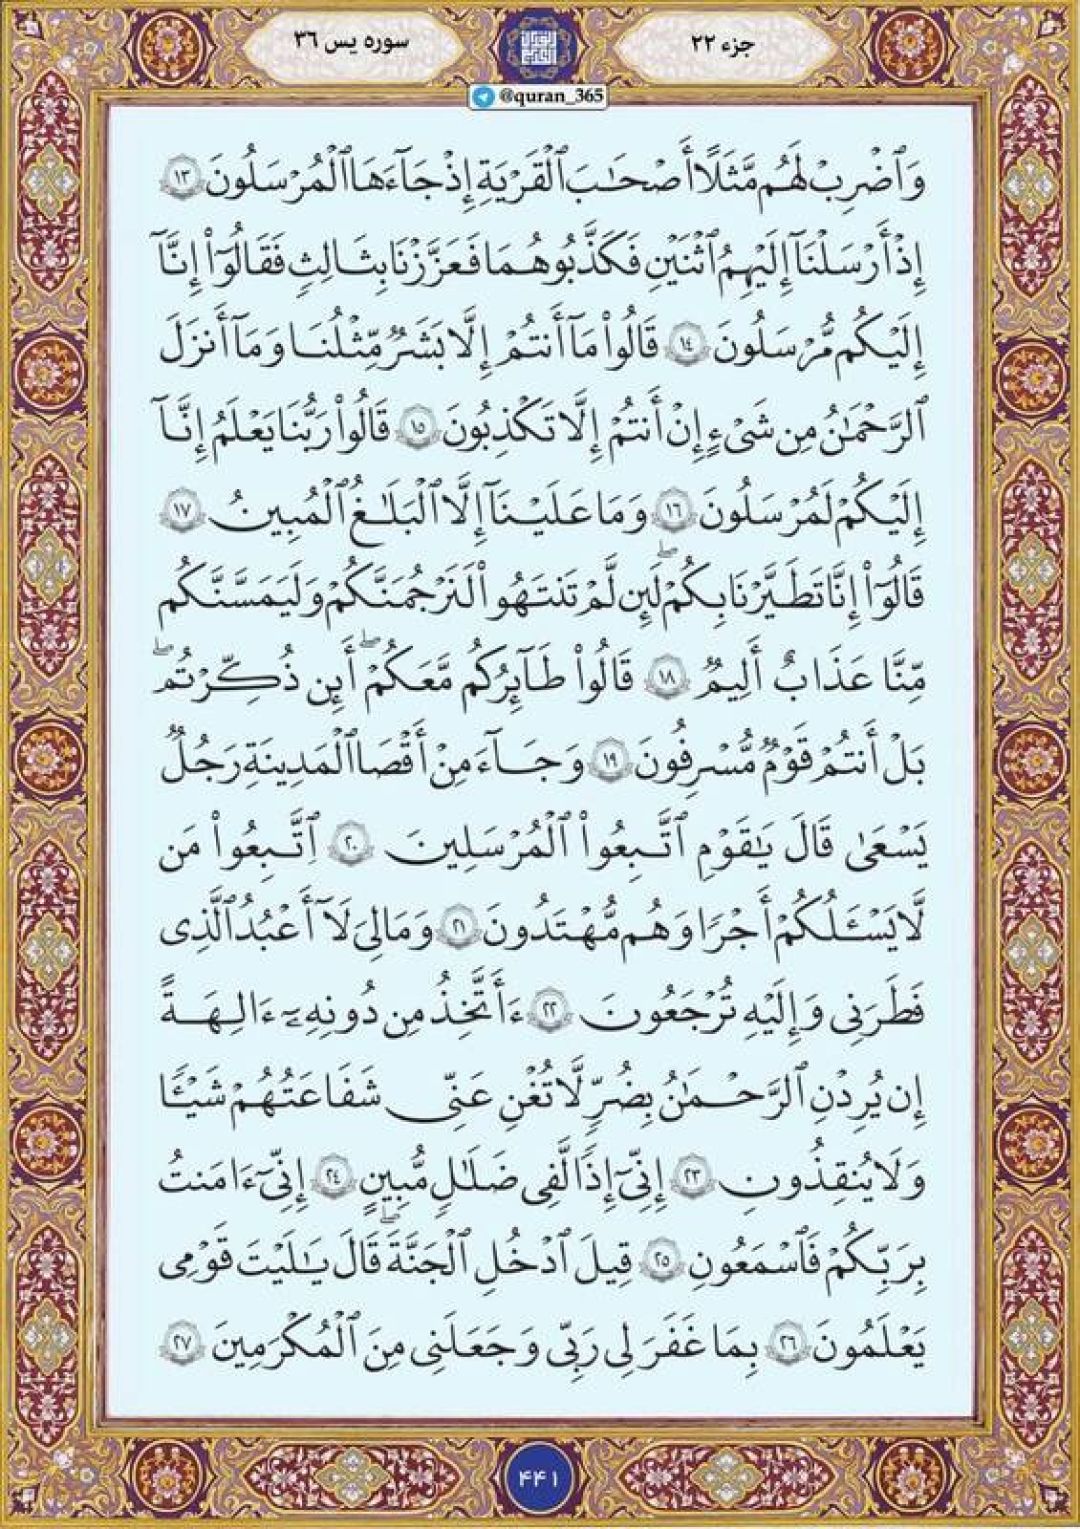 جزء ٢٢
سوره یس ٣٦
@quran_365
وَٱضْرِبْ لَهُم مَّثَلًا أَصْحَـٰبَ ٱلْقَرْيَةِ إِذْ جَآءَهَا ٱلْمُرْسَلُونَ ١٣
إِذْ أَرْسَلْنَآ إِلَيْهِمُ ٱثْنَيْنِ فَكَذَّبُوهُمَا فَعَزَّزْنَا بِثَالِثٍ فَقَالُوٓا۟ إِنَّآ
إِلَيْكُم مُّرْسَلُونَ ١٤ قَالُوا۟ مَآ أَنتُمْ إِلَّا بَشَرٌ مِّثْلُنَا وَمَآ أَنزَلَ
ٱلرَّحْمَـٰنُ مِن شَىْءٍ إِنْ أَنتُمْ إِلَّا تَكْذِبُونَ ١٥ قَالُوا۟ رَبُّنَا يَعْلَمُ إِنَّآ
إِلَيْكُمْ لَمُرْسَلُونَ ١٦ وَمَا عَلَيْنَآ إِلَّا ٱلْبَلَـٰغُ ٱلْمُبِينُ ١٧
قَالُوٓا۟ إِنَّا تَطَيَّرْنَا بِكُمْ ۖ لَئِن لَّمْ تَنتَهُوا۟ لَنَرْجُمَنَّكُمْ وَلَيَمَسَّنَّكُم
مِّنَّا عَذَابٌ أَلِيمٌ ١٨ قَالُوا۟ طَـٰٓئِرُكُم مَّعَكُمْ ۖ أَئِن ذُكِّرْتُم ۖ
بَلْ أَنتُمْ قَوْمٌ مُّسْرِفُونَ ١٩ وَجَآءَ مِنْ أَقْصَا ٱلْمَدِينَةِ رَجُلٌ
يَسْعَىٰ قَالَ يَـٰقَوْمِ ٱتَّبِعُوا۟ ٱلْمُرْسَلِينَ ٢٠ ٱتَّبِعُوا۟ مَن
لَّا يَسْـَٔلُكُمْ أَجْرًا وَهُم مُّهْتَدُونَ ٢١ وَمَا لِىَ لَآ أَعْبُدُ ٱلَّذِى
فَطَرَنِى وَإِلَيْهِ تُرْجَعُونَ ٢٢ ءَأَتَّخِذُ مِن دُونِهِۦٓ ءَالِهَةً
إِن يُرِدْنِ ٱلرَّحْمَـٰنُ بِضُرٍّ لَّا تُغْنِ عَنِّى شَفَاعَتُهُمْ شَيْـًٔا
وَلَا يُنقِذُونِ ٢٣ إِنِّىٓ إِذًا لَّفِى ضَلَـٰلٍ مُّبِينٍ ٢٤ إِنِّىٓ ءَامَنتُ
بِرَبِّكُمْ فَٱسْمَعُونِ ٢٥ قِيلَ ٱدْخُلِ ٱلْجَنَّةَ ۖ قَالَ يَـٰلَيْتَ قَوْمِى
يَعْلَمُونَ ٢٦ بِمَا غَفَرَ لِى رَبِّى وَجَعَلَنِى مِنَ ٱلْمُكْرَمِينَ ٢٧
۴۴۱